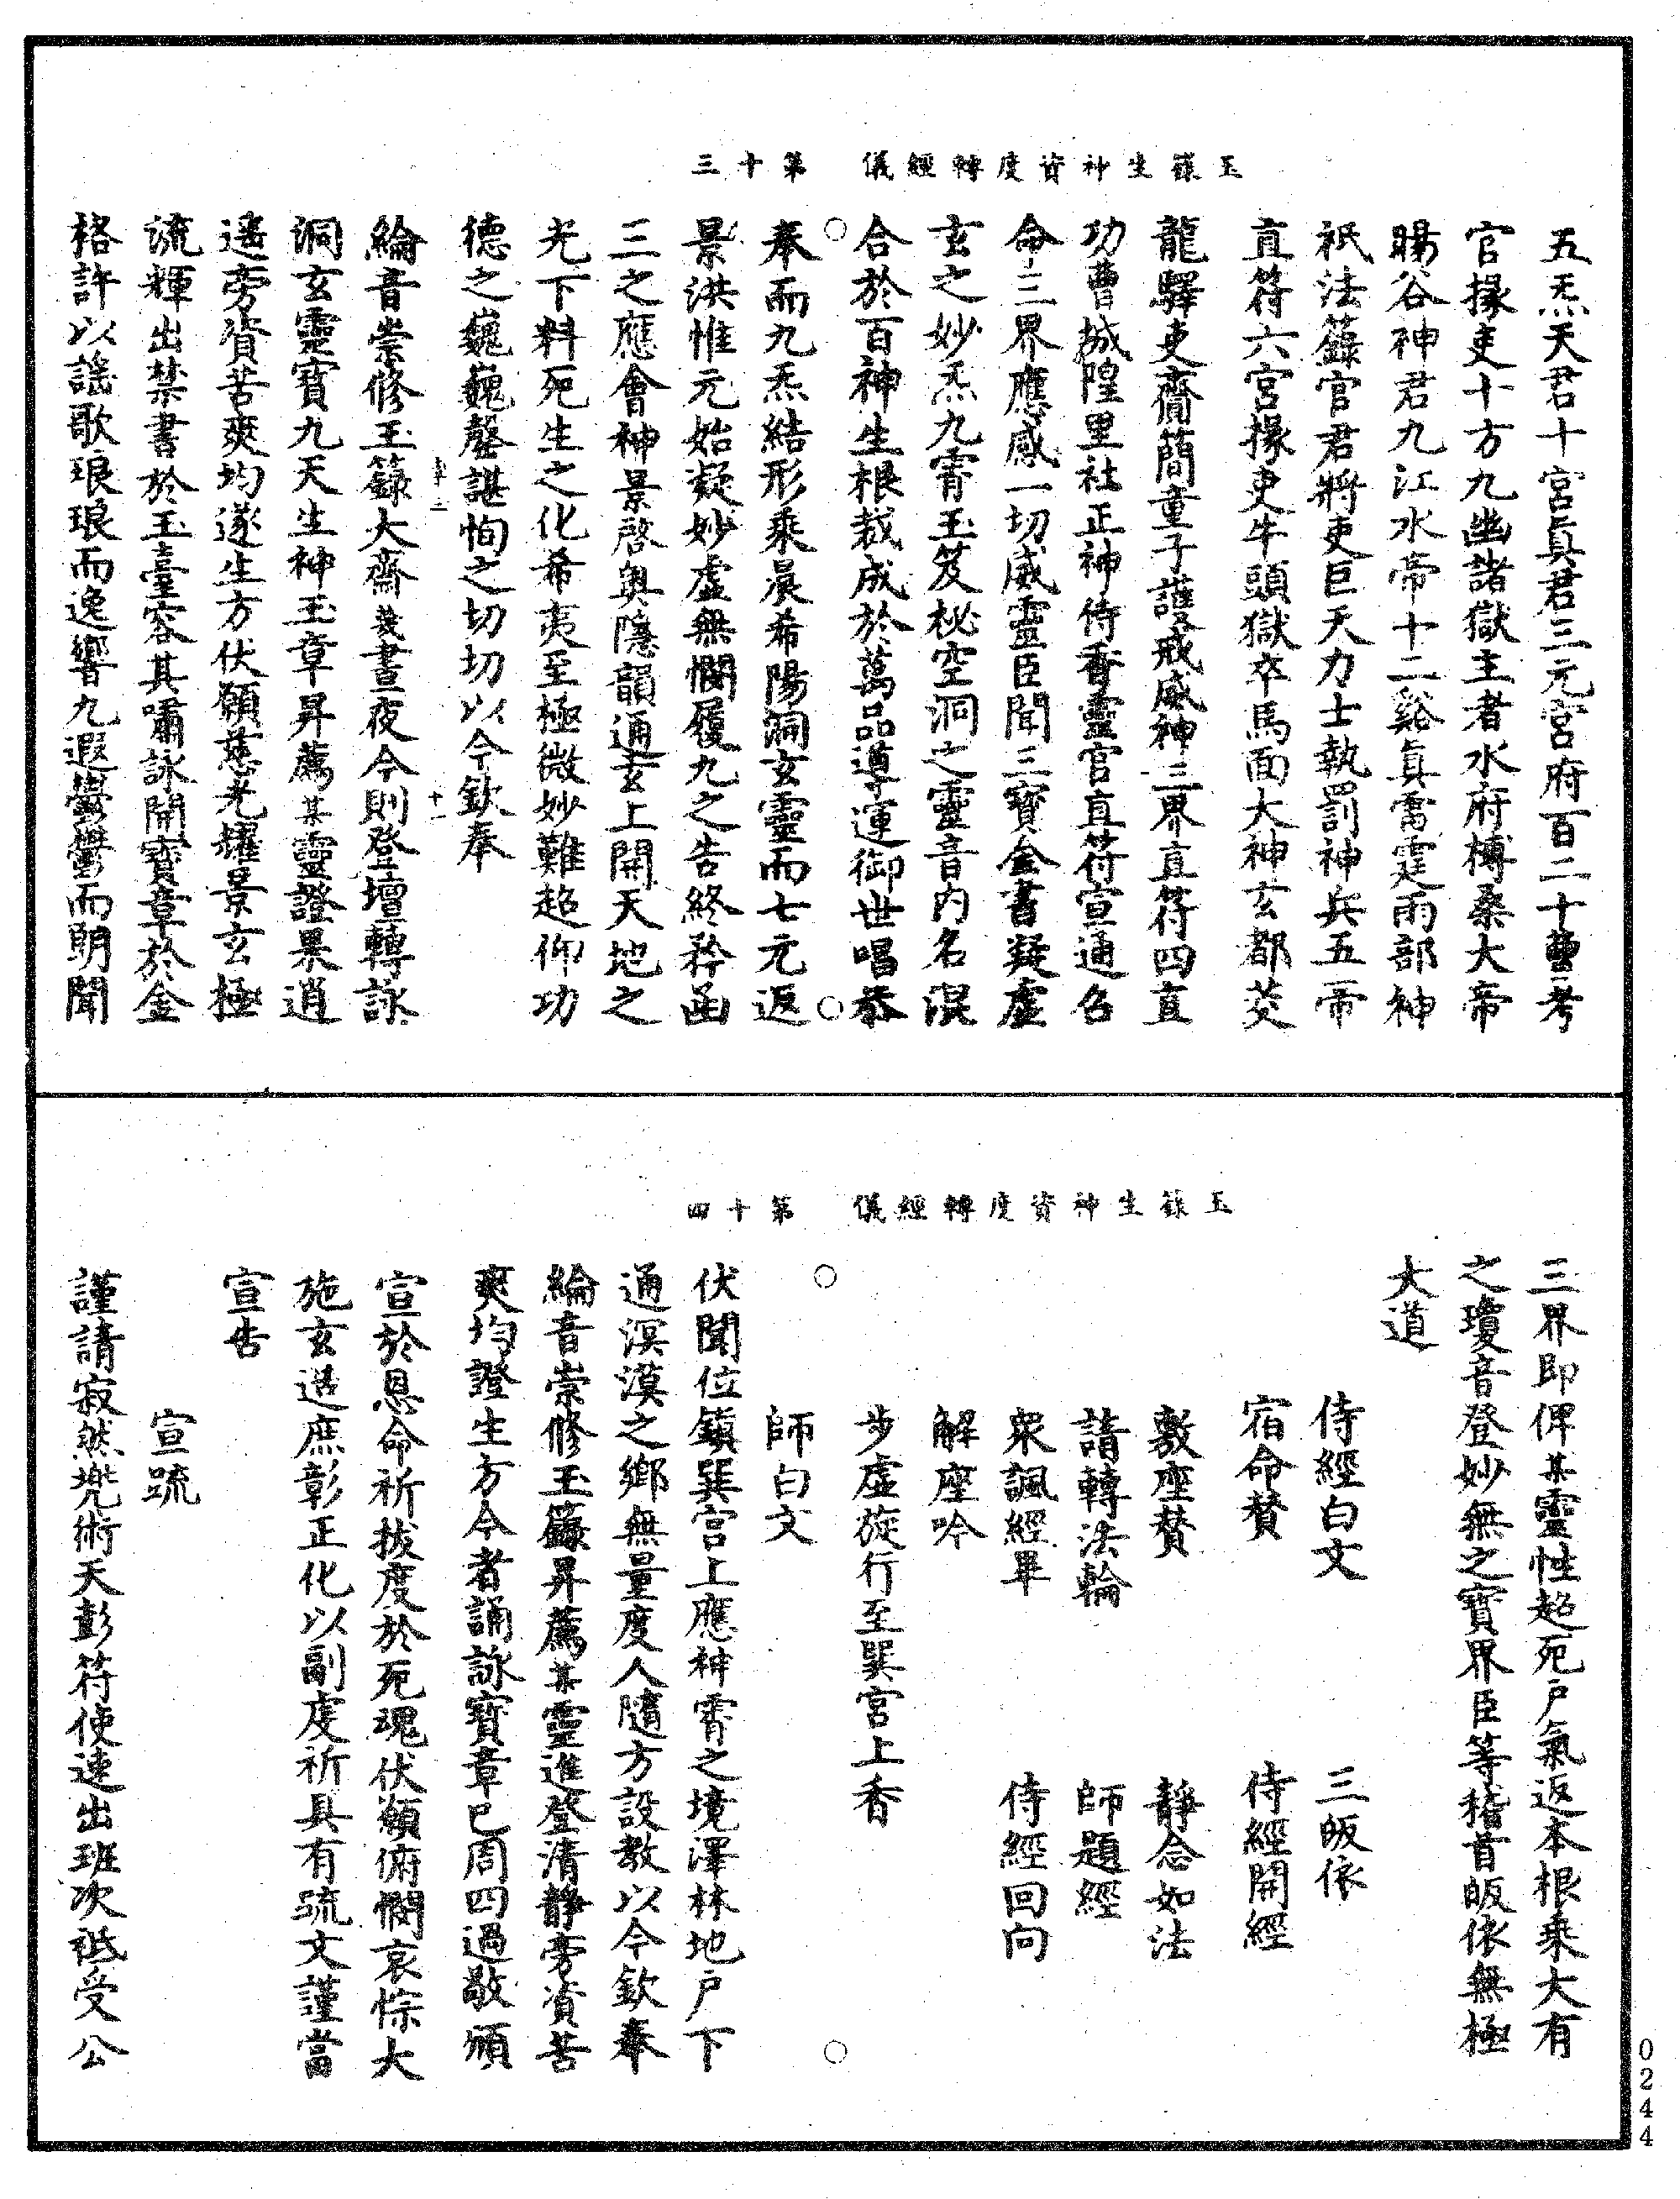 玉籙生神資度轉經儀　第十三
五炁天君十宮眞君三元宮府百二十曹考
官掾吏十方九幽諸獄主者水府榑桑大帝
暘谷神君九江水帝十二谿眞雷霆雨部神
祇法籙官君將吏巨天力士執罰神兵五帝
直符六宮掾吏牛頭獄卒馬面大神玄都茭
龍驛吏齎簡童子護戒威神三界直符四直
功曹城隍里社正神侍香靈官直符宣通名
命三界應感一切威靈臣聞三寶金書凝虛
玄之妙炁九霄玉笈秘空洞之靈音内名混
合於百神生根裁成於萬品導運御世唱恭
奉而九炁結形乘晨希陽洞玄靈而七元返
景洪惟元始凝妙虛無憫履九之告終矜函
三之應會神景啓奥隱韻通玄上開天地之
光下料死生之化希夷至極微妙難超仰功
德之巍巍罄諶恂之切切以今欽奉
綸音崇修玉籙大齋幾晝夜今則登壇轉詠
洞玄靈寶九天生神玉章昇薦某靈證果逍
遥旁資苦爽均遂生方伏願慈光耀景玄極
流輝出禁書於玉臺容其嘯詠開寶章於金
格許以謡歌琅琅而逸響九遐欝欝而朗聞
玉籙生神資度轉經儀　第十四
三界即俾某靈性超死戶氣返本根乘大有
之瓊音登妙無之寶界臣等稽首皈依無極
大道
侍經白文　三皈依
宿命賛　侍經開經
敷座賛　靜念如法
請轉法輪　師題經
衆諷經畢　侍經回向
解座吟
步虛旋行至巽宮上香
師白文
伏聞位鎮巽宮上應神霄之境澤林地戶下
通溟漠之鄉無量度人隨方設教以今欽奉
綸音崇修玉籙昇薦某靈進登清靜旁資苦
爽均證生方今者誦詠寶章已周四過敬頒
宣於恩命祈拔度於死魂伏願俯憫哀悰大
施玄造庶彰正化以副虔祈具有疏文謹當
宣告
宣疏
謹請寂然兠術天彭符使速出班次祗受公
0244